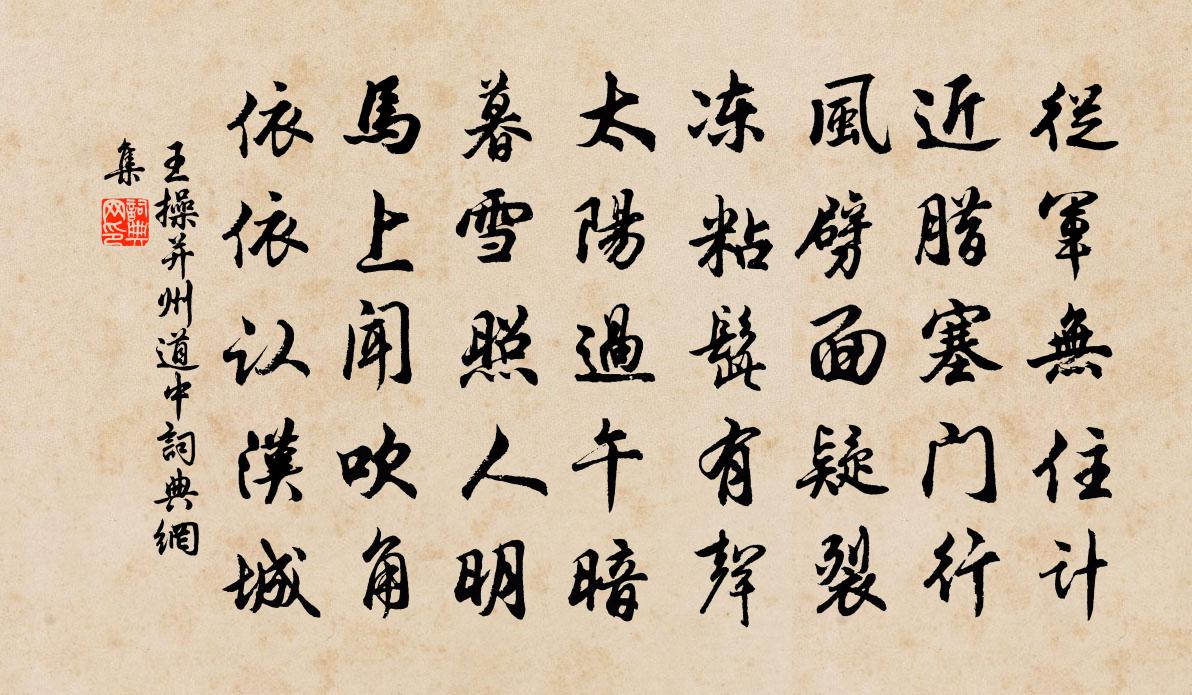 從軍無住计
近腊塞门行
風劈面疑裂
冻粘髭有聲
太陽過午暗
暮雪照人明
馬上闻吹角
依依认漢城
王操并州道中詞典網
集
詞典網印